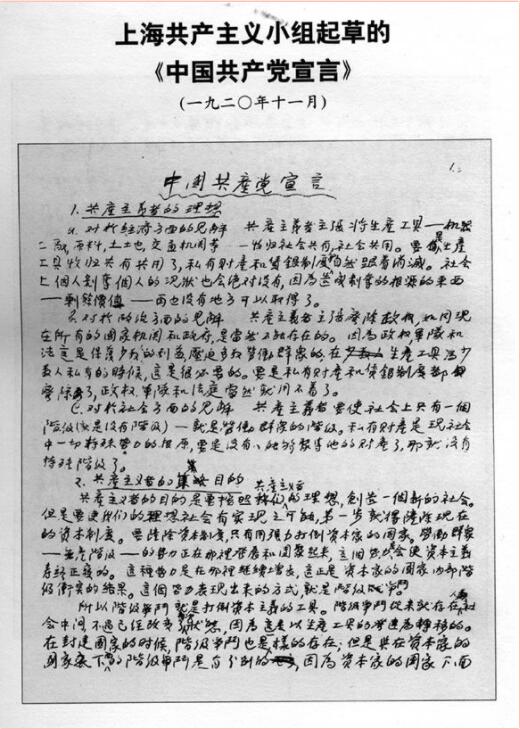 上海共产主义小组起草的
《中国共产党宣言》
(一九二〇年十一月)
1.
中国共產党宣言
1. 共產主義者的理想
a. 对於经济方面的見解 共產主義者主張将生產工具——机器
工廠,原料,土地,交通机関等——收归社会共有,社会共用。要是生產
工具收归共有共用了,私有財產和賃銀制度自然跟着消滅。社会
上個人剥掌個人的现狀也会绝对没有,因为造成剥掌的根源的東西
——剰餘價値——再也没有地方可以取得了。
B. 对於政治方面的見解 共產主義者主張廢除政权,如同现
在所有的国家机関和政府,是當然不能存在的。因為政权軍隊和
法庭是保護少数人的利益,壓迫多数勞働群衆的,在生產工具为少
数人私有的時候,這是很必要的。要是私有財產和賃銀制度都
廢除了,政权、軍隊和法庭當然就用不着了。
C. 对於社会方面的見解 共產主義者要使社会上只有一個
階級(就是没有階級)——就是勞働群衆的階級。私有財產是现社会
中一切特殊势力的根原,要是没有人能够聚集他的財產了,那就没有
特殊階級了。
2. 共產主義者的目的
共產主義者的目的是要按照共產主義者的理想,創造一個新的社会。
但是要使我们的理想社会有實现之可能,第一步就得鏟除现在
的資本制度。要鏟除資本制度,只有用强力打倒資本家的国家。勞動群衆
——無產階級——的势力正在那裡發展和团聚起来,這個势力会使資本主義
寿終正寝的。這種势力是在那裡继續增長,這正是資本家的国家内部階
級衝突的结果。這個势力表现出来的方式,就是階級争鬥。
所以階級争鬥就是打倒資本主義的工具。階級争鬥從来就存在人類社
会中间,不过已经改变了狀態,因為這是以生產工具的發達為轉移的。
在封建国家的時候,階級争鬥也是一樣的存在;但是與在資本家的
国家底下的階級争鬥是有分别的,因為資本家的国家下面